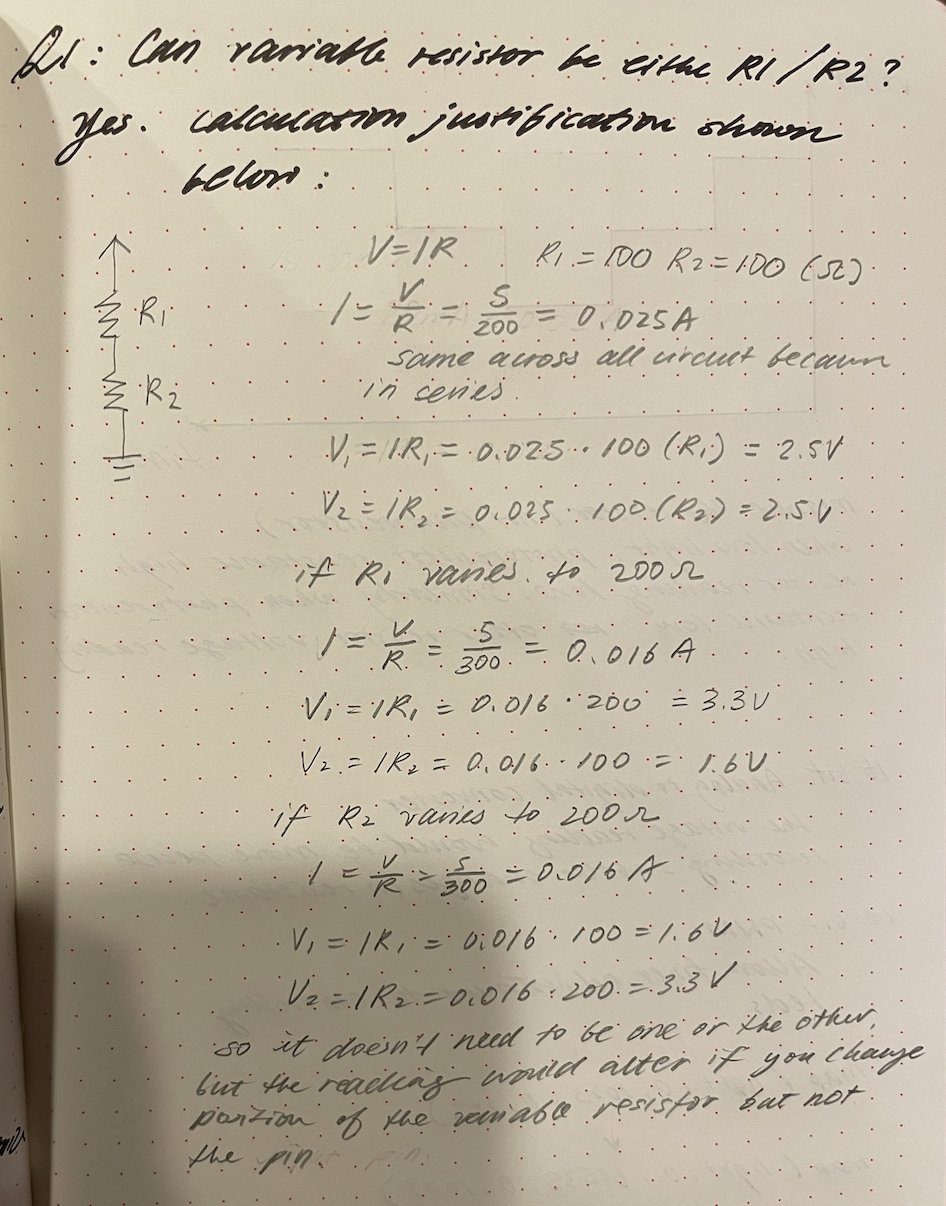 Q1: Can variable resistor be either R1/R2?
Yes. calculation justification shown
below:
V=IR R1=100 R2=100 (Ω)
I = V/R = 5/200 = 0.025A
same across all circuit because
in series.
R1
R2
V1 = IR1 = 0.025 · 100 (R1) = 2.5V
V2 = IR2 = 0.025 · 100 (R2) = 2.5V
if R1 varies to 200Ω
I = V/R = 5/300 = 0.016 A
V1 = IR1 = 0.016 · 200 = 3.3V
V2 = IR2 = 0.016 · 100 = 1.6V
if R2 varies to 200Ω
I = V/R = 5/300 = 0.016 A
V1 = IR1 = 0.016 · 100 = 1.6V
V2 = IR2 = 0.016 · 200 = 3.3V
so it doesn't need to be one or the other,
but the reading would alter if you change
position of the variable resistor but not
the pin.